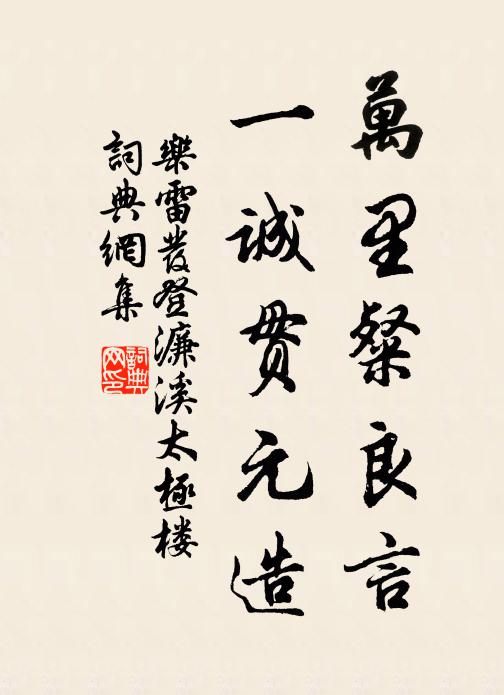 萬里粲良言
一誠贯元造
樂雷發登濂溪太極楼
詞典網集
詞典網印